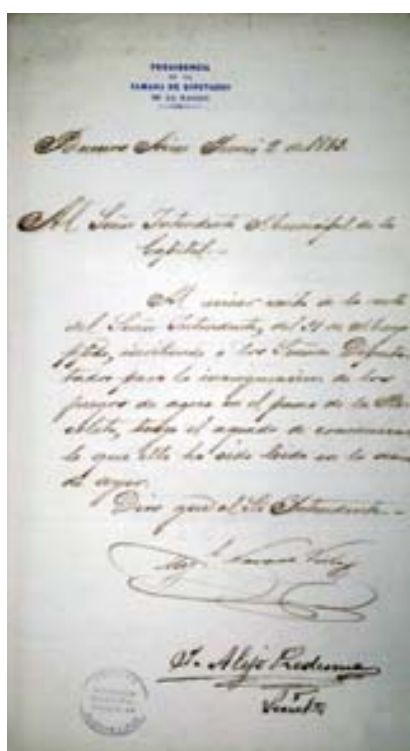 PRESIDENCIA
DE LA
CAMARA DE DIPUTADOS
DE LA NACION
Buenos Aires Junio 2 de
Al Señor Intendente Municipal de la
Capital.-
Al acusar recibo de la nota
del Señor Intendente, del 31 de Mayo
ppdo, invitando a los Señores Diputa-
tados para la inauguracion de los
juegos de agua en el paseo de la Re-
coleta, tengo el agrado de comunicar
le que ella ha sido leida en la
de ayer.
Dios gue al Sr Intendente.-
D. Alejo Ledesma